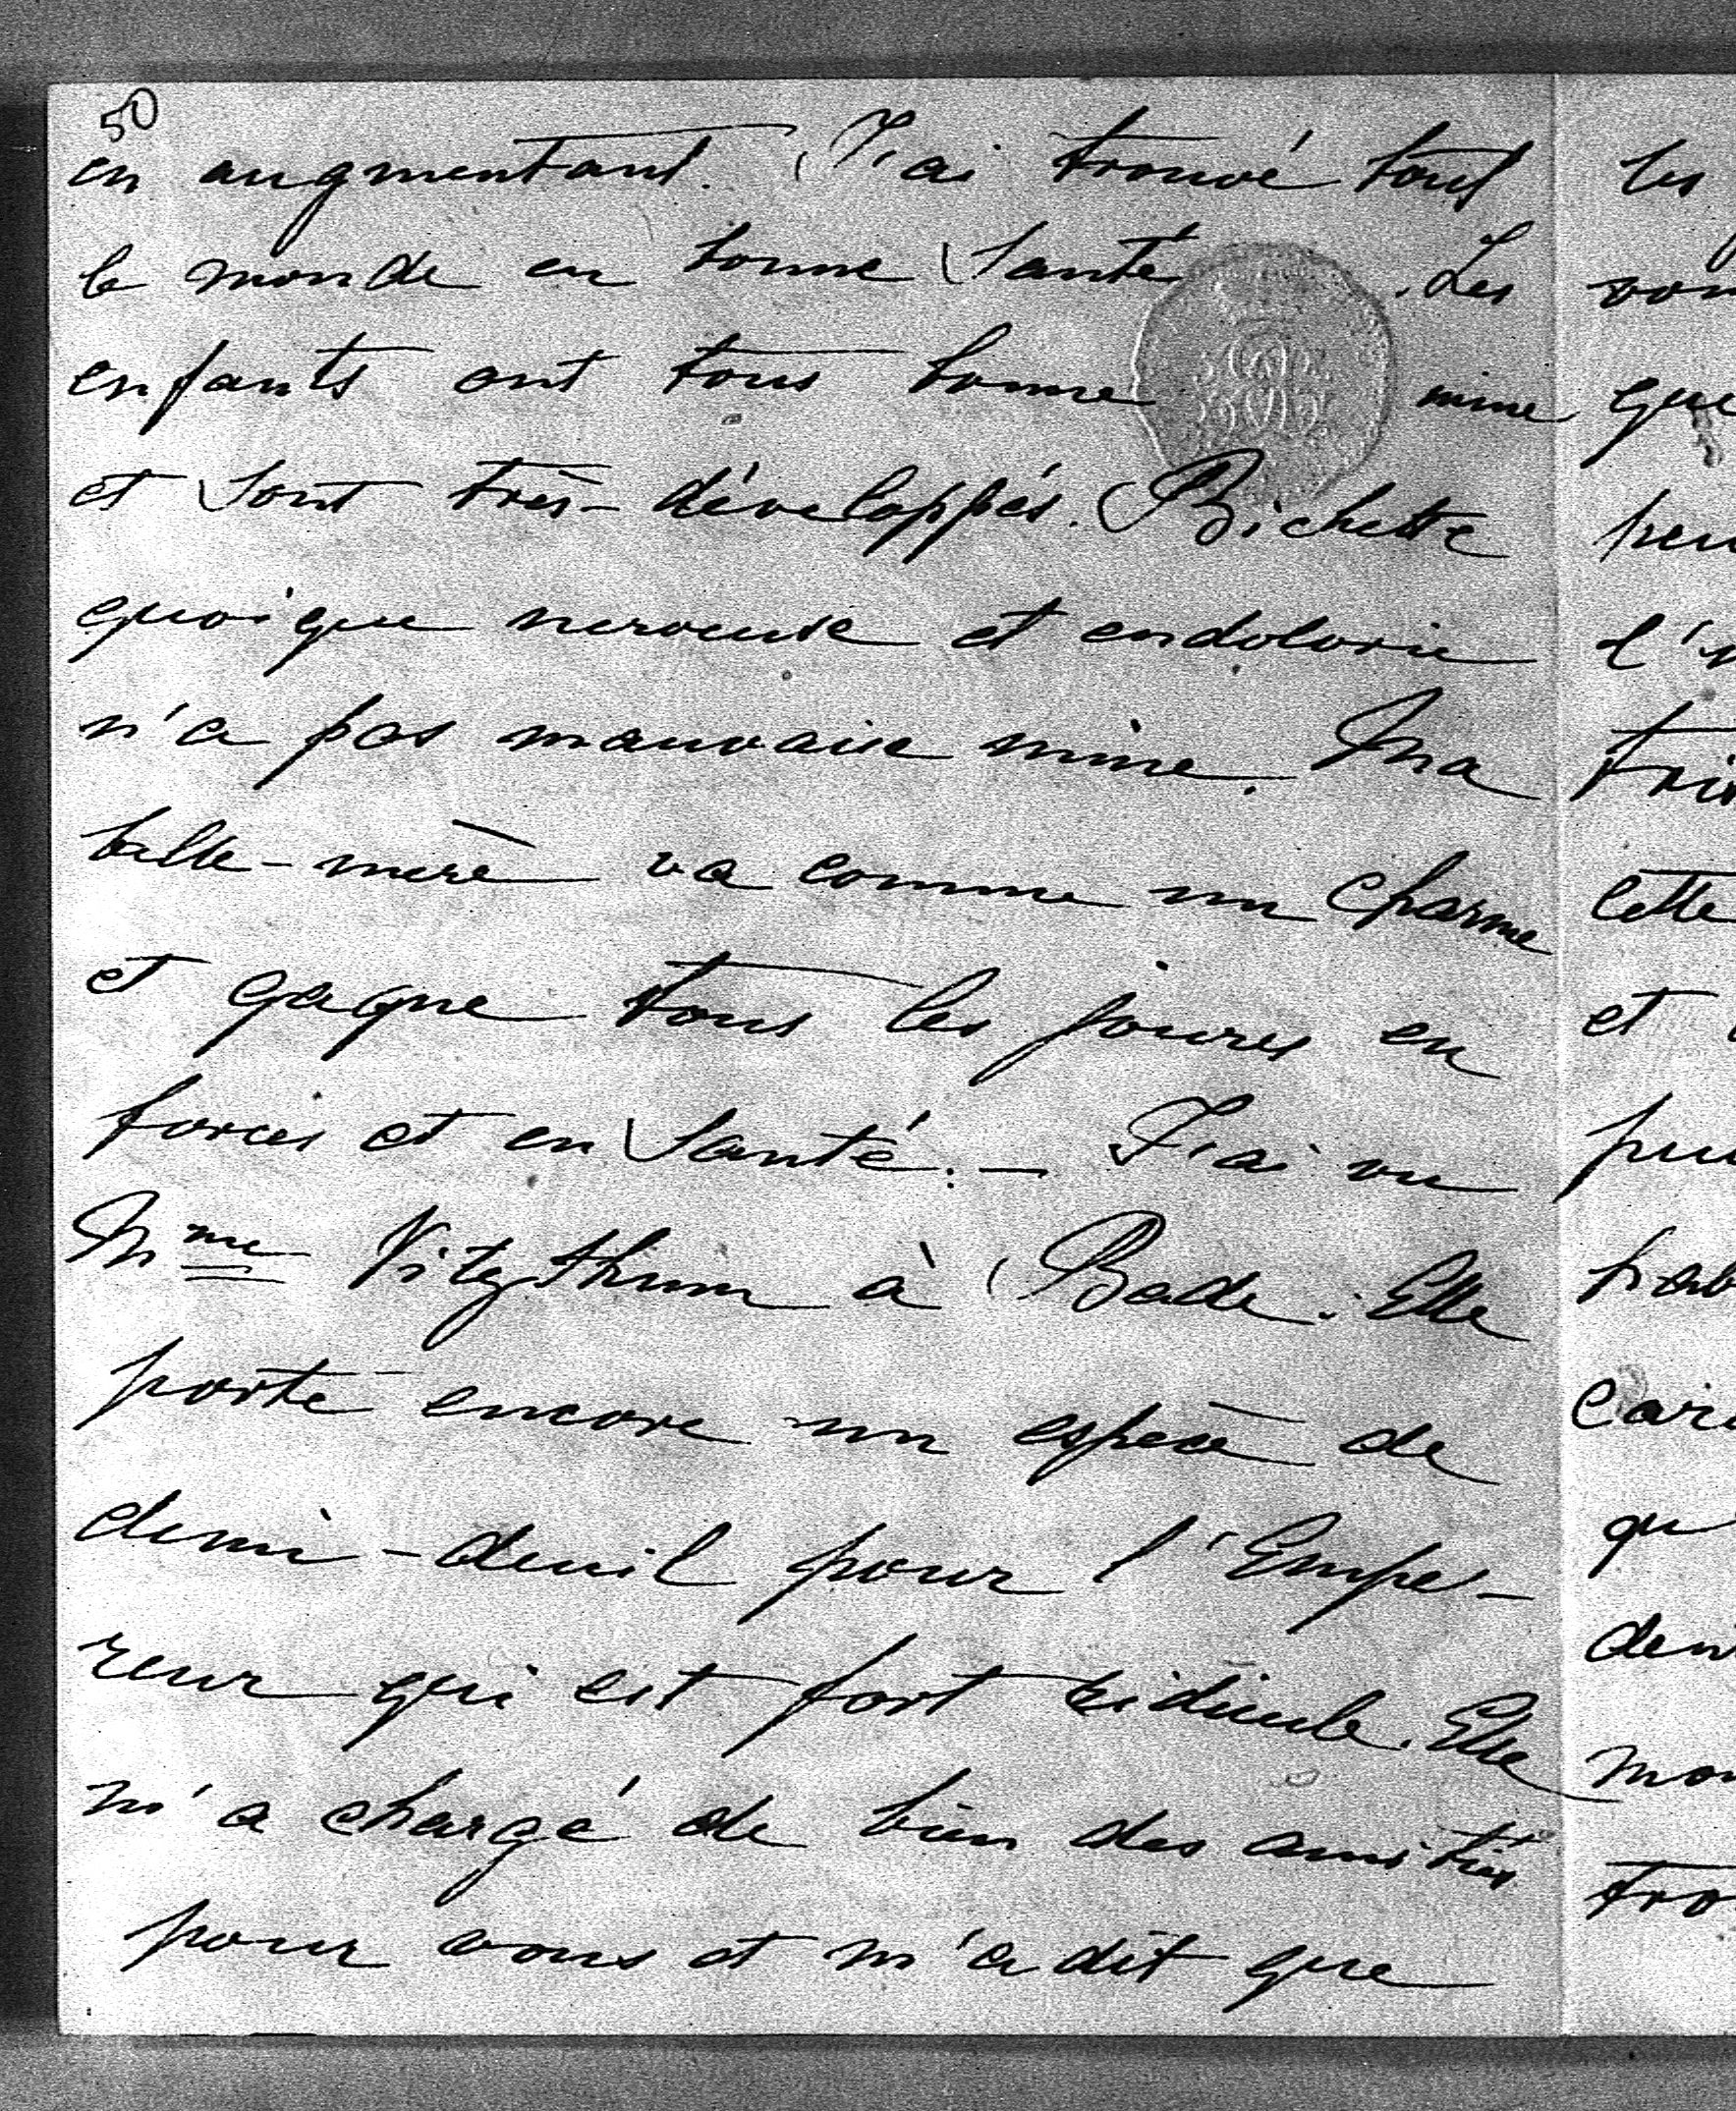 50
en augmentant. J'ai trouvé tout
le monde en bonne santé. Les
enfants ont tous bonne mine
et sont très-développés. Bichette
quoique nerveuse et endolorie
n'a pas mauvaise mine. Ma
belle-mère va comme un charme
et gagne tous les jours en
forces et en santé. — J'ai vu
Mme Vitzthum à Bade. Elle
porte encore un espèce de
demi-deuil pour l'Empe-
reur qui est fort ridicule. Elle
m'a chargé de bien des amitiés
pour vous et m'a dit que
les
que
l'
cette
et
qu